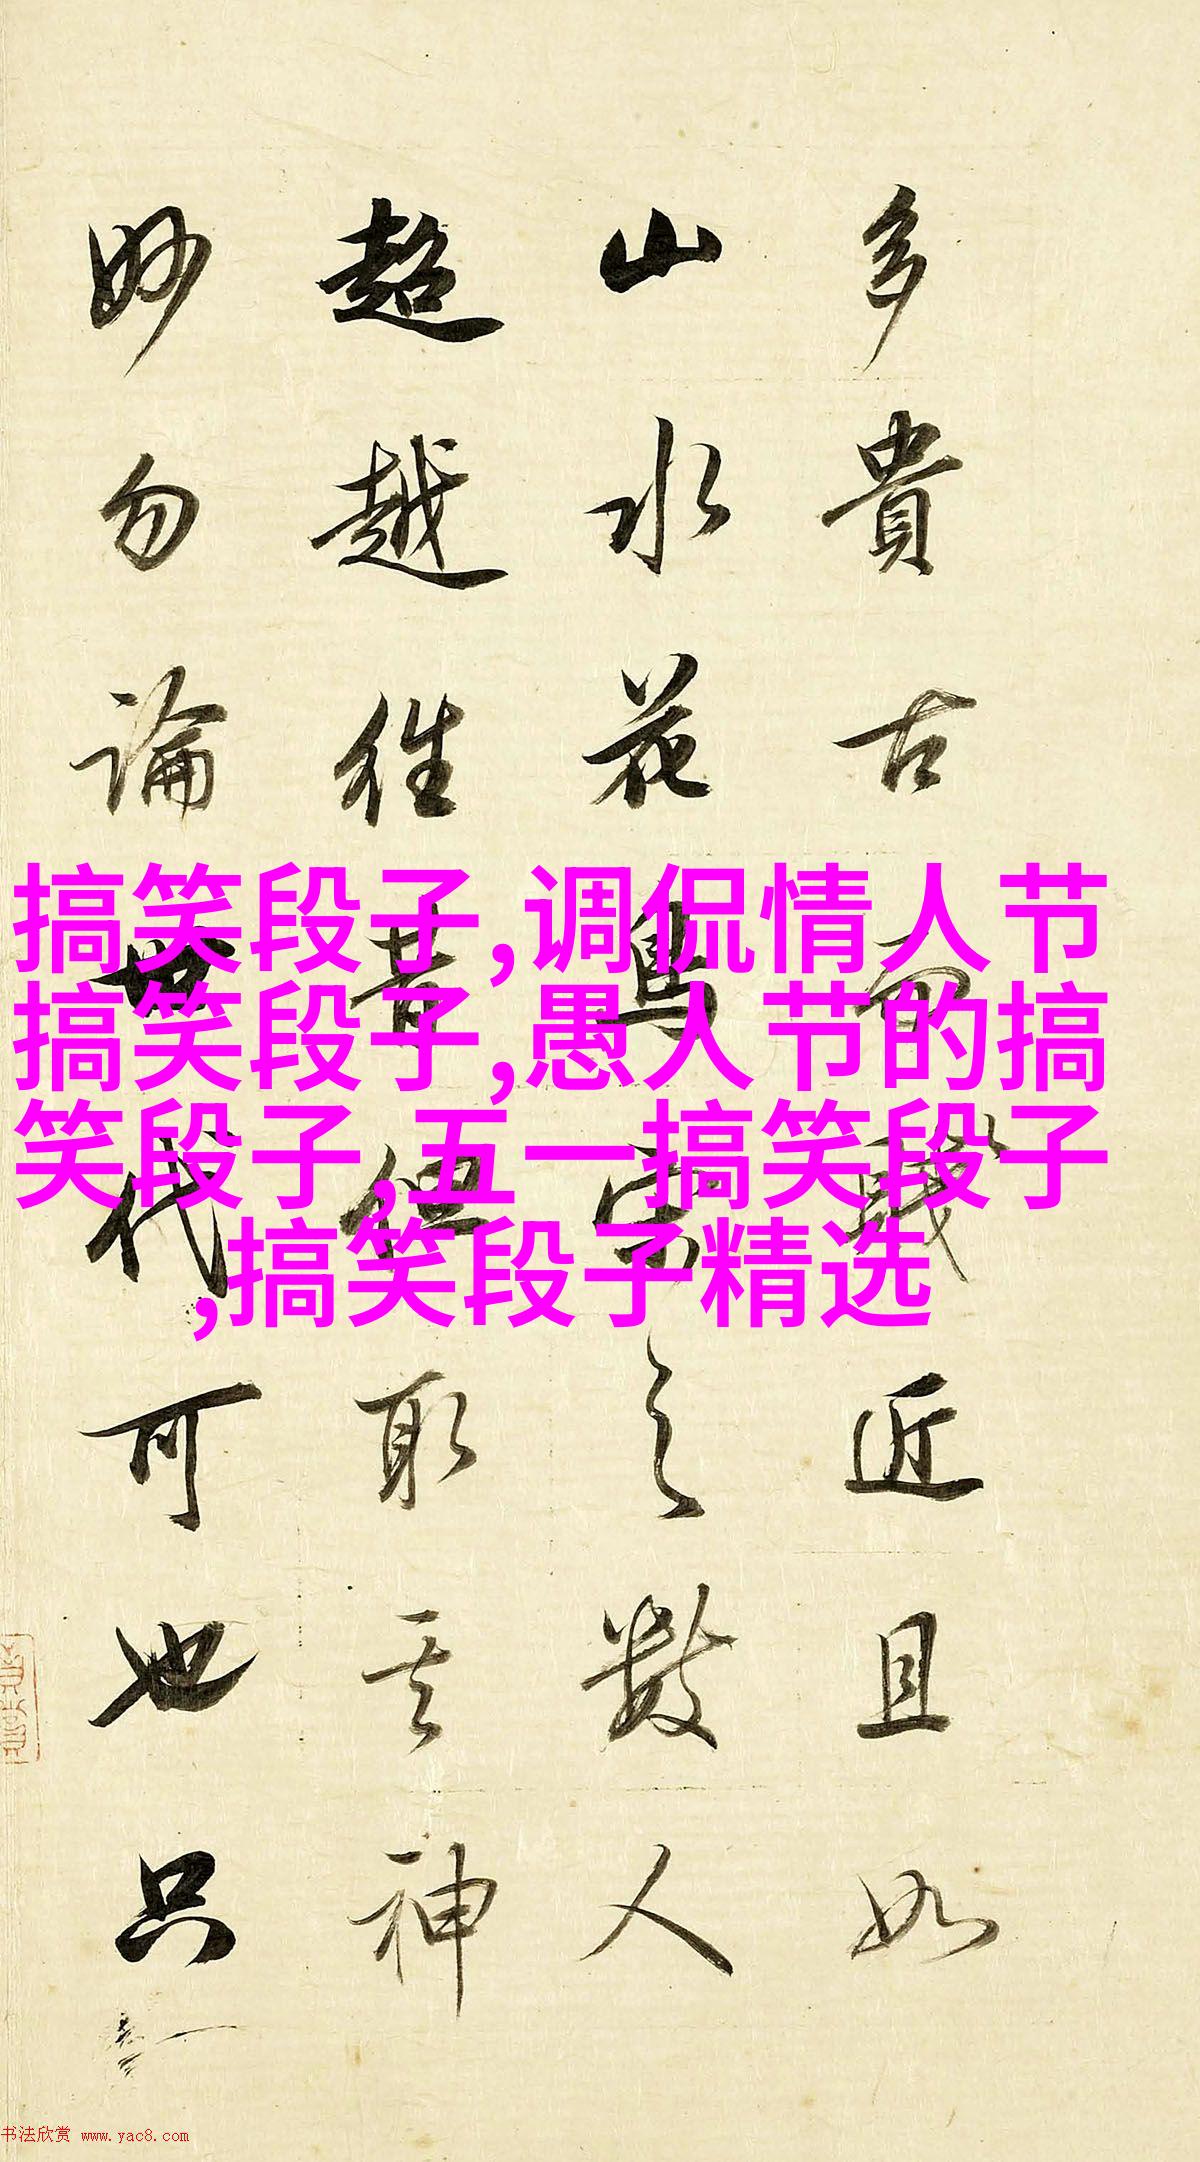 多貴古而賤近且如
山水花鳥宗之數人
超越往昔但取其神
妙勿論世代可也只
搞笑段子,调侃情人节
搞笑段子,愚人节的搞
笑段子,五一搞笑段子
,搞笑段子精选
书法欣赏 www.yac8.com